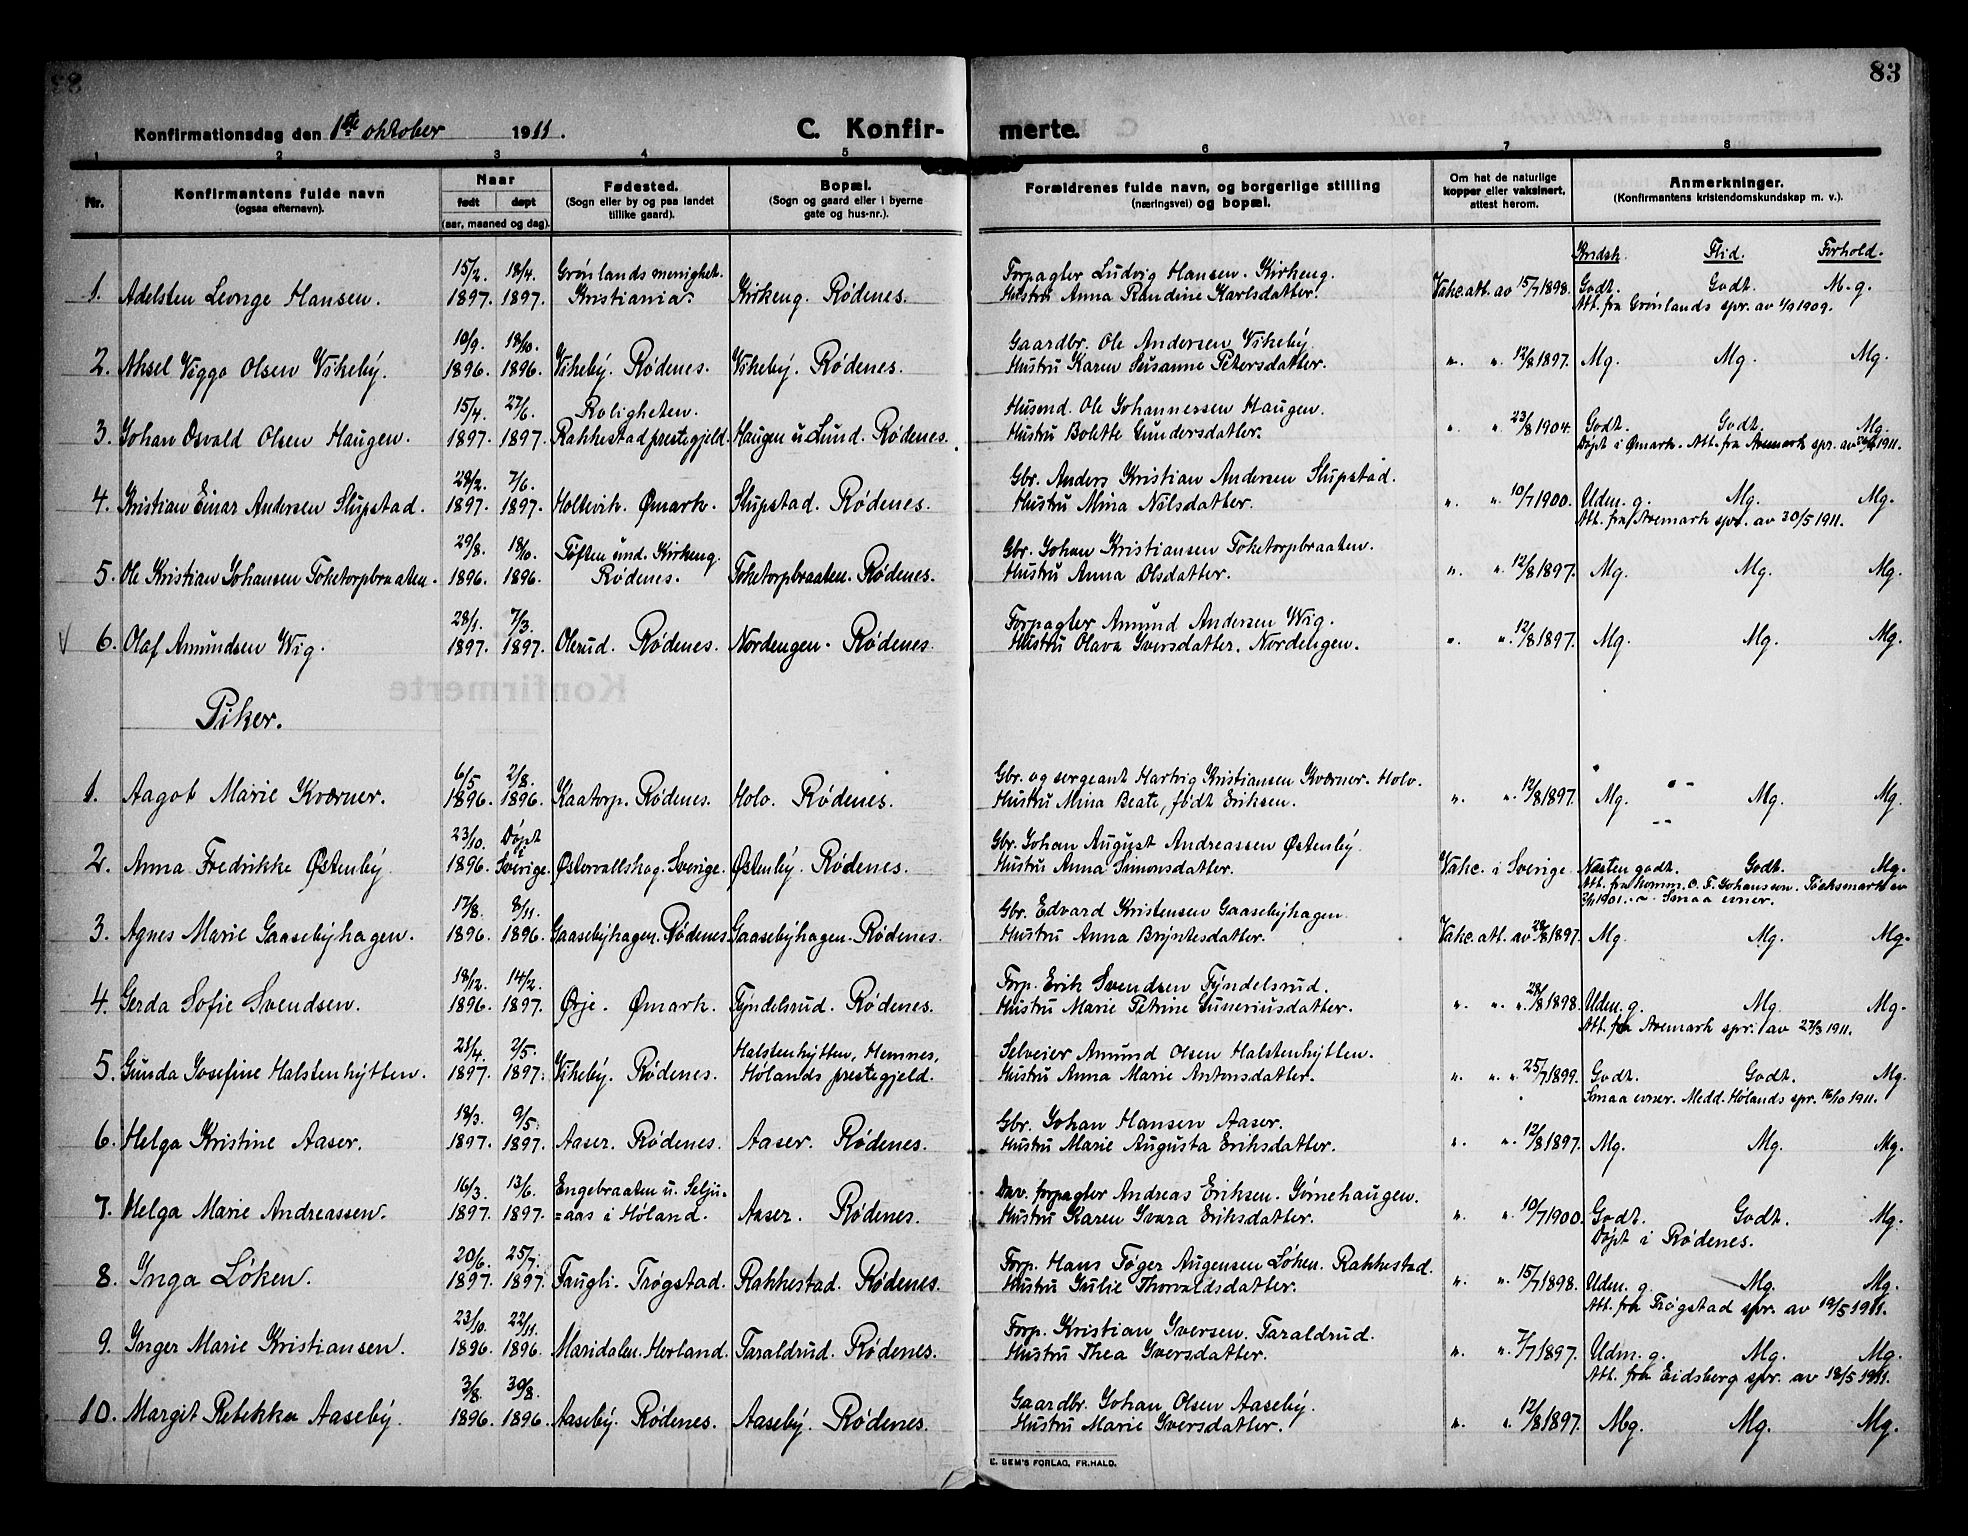 83
Konfirmationsdag den 1ste oktober 1911. C. Konfirmerte.
1 2 3 4 5 6 7 8
Nr. Konfirmantens fulde navn (ogsaa efternavn). Naar født døpt (aar, maaned og dag). Fødested. (Sogn eller by og paa landet tillike gaard). Bopæl. (Sogn og gaard eller i byerne gate og hus-nr.). Forældrenes fulde navn, og borgerlige stilling (næringsvei) og bopæl. Om hat de naturlige kopper eller vaksinert, attest herom. Anmerkninger. (Konfirmantens kristendomskundskap m. v.).
Krdsk. Flid. Forhold.
15/2 18/4. Grønlands menighet. Forpagter Ludvig Hansen. Kirkeng.
1. Adelsten Leonge Hansen. 1897. 1897. Kristiania. Kirkeng. Rødenes. Hustru Anna Randine Karlsdatter. Vakc. att. av 15/7 1898. Godt. Godt. M.g.
Att. fra Grønlands spr. av 1/9 1909.
10/9. 18/10. Gaardbr. Ole Andersen Vikeby.
2. Aksel Viggo Olsen Vikeby. 1896. 1896. Vikeby. Rødenes. Vikeby. Rødenes. Hustru Karen Susanne Petersdatter. " " 12/8 1897. Mg. Mg. Mg.
15/4. 27/6. Roligheten. Husmd. Ole Johannersen Haugen.
3. Johan Osvald Olsen Haugen. 1897. 1897. Rakkestad prestegjeld. Haugen u. Lund. Rødenes. Hustru Bolette Gundersdatter. " " 23/8 1904. Godt. Godt. Mg.
Døpt i Ømark. Att. fra Aremark spr. av 1911.
28/2. 7/6. Gbr. Anders Kristian Andersen Slupstad.
4. Kristian Einar Andersen Slupstad. 1897. 1897. Holtevik. Ømark. Slupstad. Rødenes. Hustru Mina Nilsdatter. " " 10/7 1900. Udm. g. Mg. Mg.
Att. fra Aremark spr. av 30/5 1911.
29/8. 18/10. Tøften und. Kirkeng. Gbr. Johan Kristiansen Toketorpbraaten.
5. Ole Kristian Johansen Toketorpbraaten. 1896. 1896. Rødenes. Toketorpbraaten. Rødenes. Hustru Anna Olsdatter. " " 12/8 1897. Mg. Mg. Mg.
28/1. 7/3. Forpagter Amund Andersen Wig.
6. Olaf Amundsen Wig. 1897. 1897. Olerud. Rødenes. Nordengen. Rødenes. Hustru Olava Iversdatter. Nordengen. " " 12/8 1897. Mg. Mg. Mg.
Piker.
6/5 2/8. Gbr. og sergeant Hartvig Kristiansen Kværner. Holv.
1. Aagot Marie Kværner. 1896. 1896. Kaatorp. Rødenes. Holv. Rødenes. Hustru Mina Beate, født Eriksen. " " 12/8 1897. Mg. Mg. Mg.
23/10. Døpt i Gbr. Johan August Andreassen Østenby.
2. Anna Fredrikke Østenby 1896. Sverige. Østervallskog. Sverige. Østenby. Rødenes. Hustru Anna Simonsdatter. Vakc. i Sverige. Næsten godt. Godt. Mg.
Att. fra komm. O. F. Johansson. Töcksmark av
1901. Smaa evner.
17/8. 8/11. Gbr. Edvard Kristensen Gaasebyhagen.
3. Agnes Marie Gaasebyhagen. 1896. 1896. Gaasebyhagen. Rødenes. Gaasebyhagen. Rødenes. Hustru Anna Bryntesdatter. Vakc. att. av 28/8 1897. Mg. Mg. Mg.
18/12. 14/2. Forp. Erik Svendsen Tyndelsrud.
4. Gerda Sofie Svendsen. 1896. 1897. Ørje. Ømark. Tyndelsrud. Rødenes. Hustru Marie Petrine Guneriusdatter. " " 28/8 1898. Udm. g. Mg. Mg.
Att. fra Aremark spr. av 27/3 1911.
21/4. 2/5. Halstenhytten, Hemnes, Selveier Amund Olsen Halstenhytten.
5. Gunda Josefine Halstenhytten. 1897. 1897. Vikeby. Rødenes. Hølands prestegjeld. Hustru Anna Marie Antonsdatter. " " 25/7 1899. Godt. Godt. Mg.
Smaa evner. Medd. Hølands spr. 16/10 1911.
18/3. 9/5. Gbr. Johan Hansen Aaser.
6. Helga Kristine Aaser. 1897. 1897. Aaser. Rødenes. Aaser. Rødenes. Hustru Marie Augusta Eriksdatter. " " 12/8 1897. Mg. Mg. Mg.
16/3. 13/6. Engebraaten u. Selju= Dav. forpagter Andreas Eriksen. Gørnehaugen.
7. Helga Marie Andreassen. 1897. 1897. =aas i Høland. Aaser. Rødenes. Hustru Karen Ivara Eriksdatter. " " 10/7 1900. Godt. Godt. Mg.
Døpt i Rødenes.
20/6. 25/7. Forp. Hans Tøger Augensen Løken. Rakkestad.
8. Inga Løken. 1897. 1897. Faugli. Trøgstad. Rakkestad. Rødenes. Hustru Julie Thorvaldsdatter. " " 15/7 1898. Udm. g. Mg. Mg.
Att. fra Trøgstad spr. av 19/5 1911.
23/10. 22/11. Forp. Kristian Iversen. Taraldrud.
9. Inger Marie Kristiansen. 1896. 1896. Maridalen. Herland. Taraldrud. Rødenes. Hustru Thea Iversdatter. " " 7/7 1897. Udm. g. Mg. Mg.
Att. fra Eidsberg spr. av 18/5 1911.
3/8. 30/8. Gaardbr. Johan Olsen Aaseby.
10. Margit Rebekka Aaseby. 1896. 1896. Aaseby. Rødenes. Aaseby. Rødenes. Hustru Marie Iversdatter. " " 12/8 1897. Mg. Mg. Mg.
E. SEM'S FORLAG, FR.HALD.